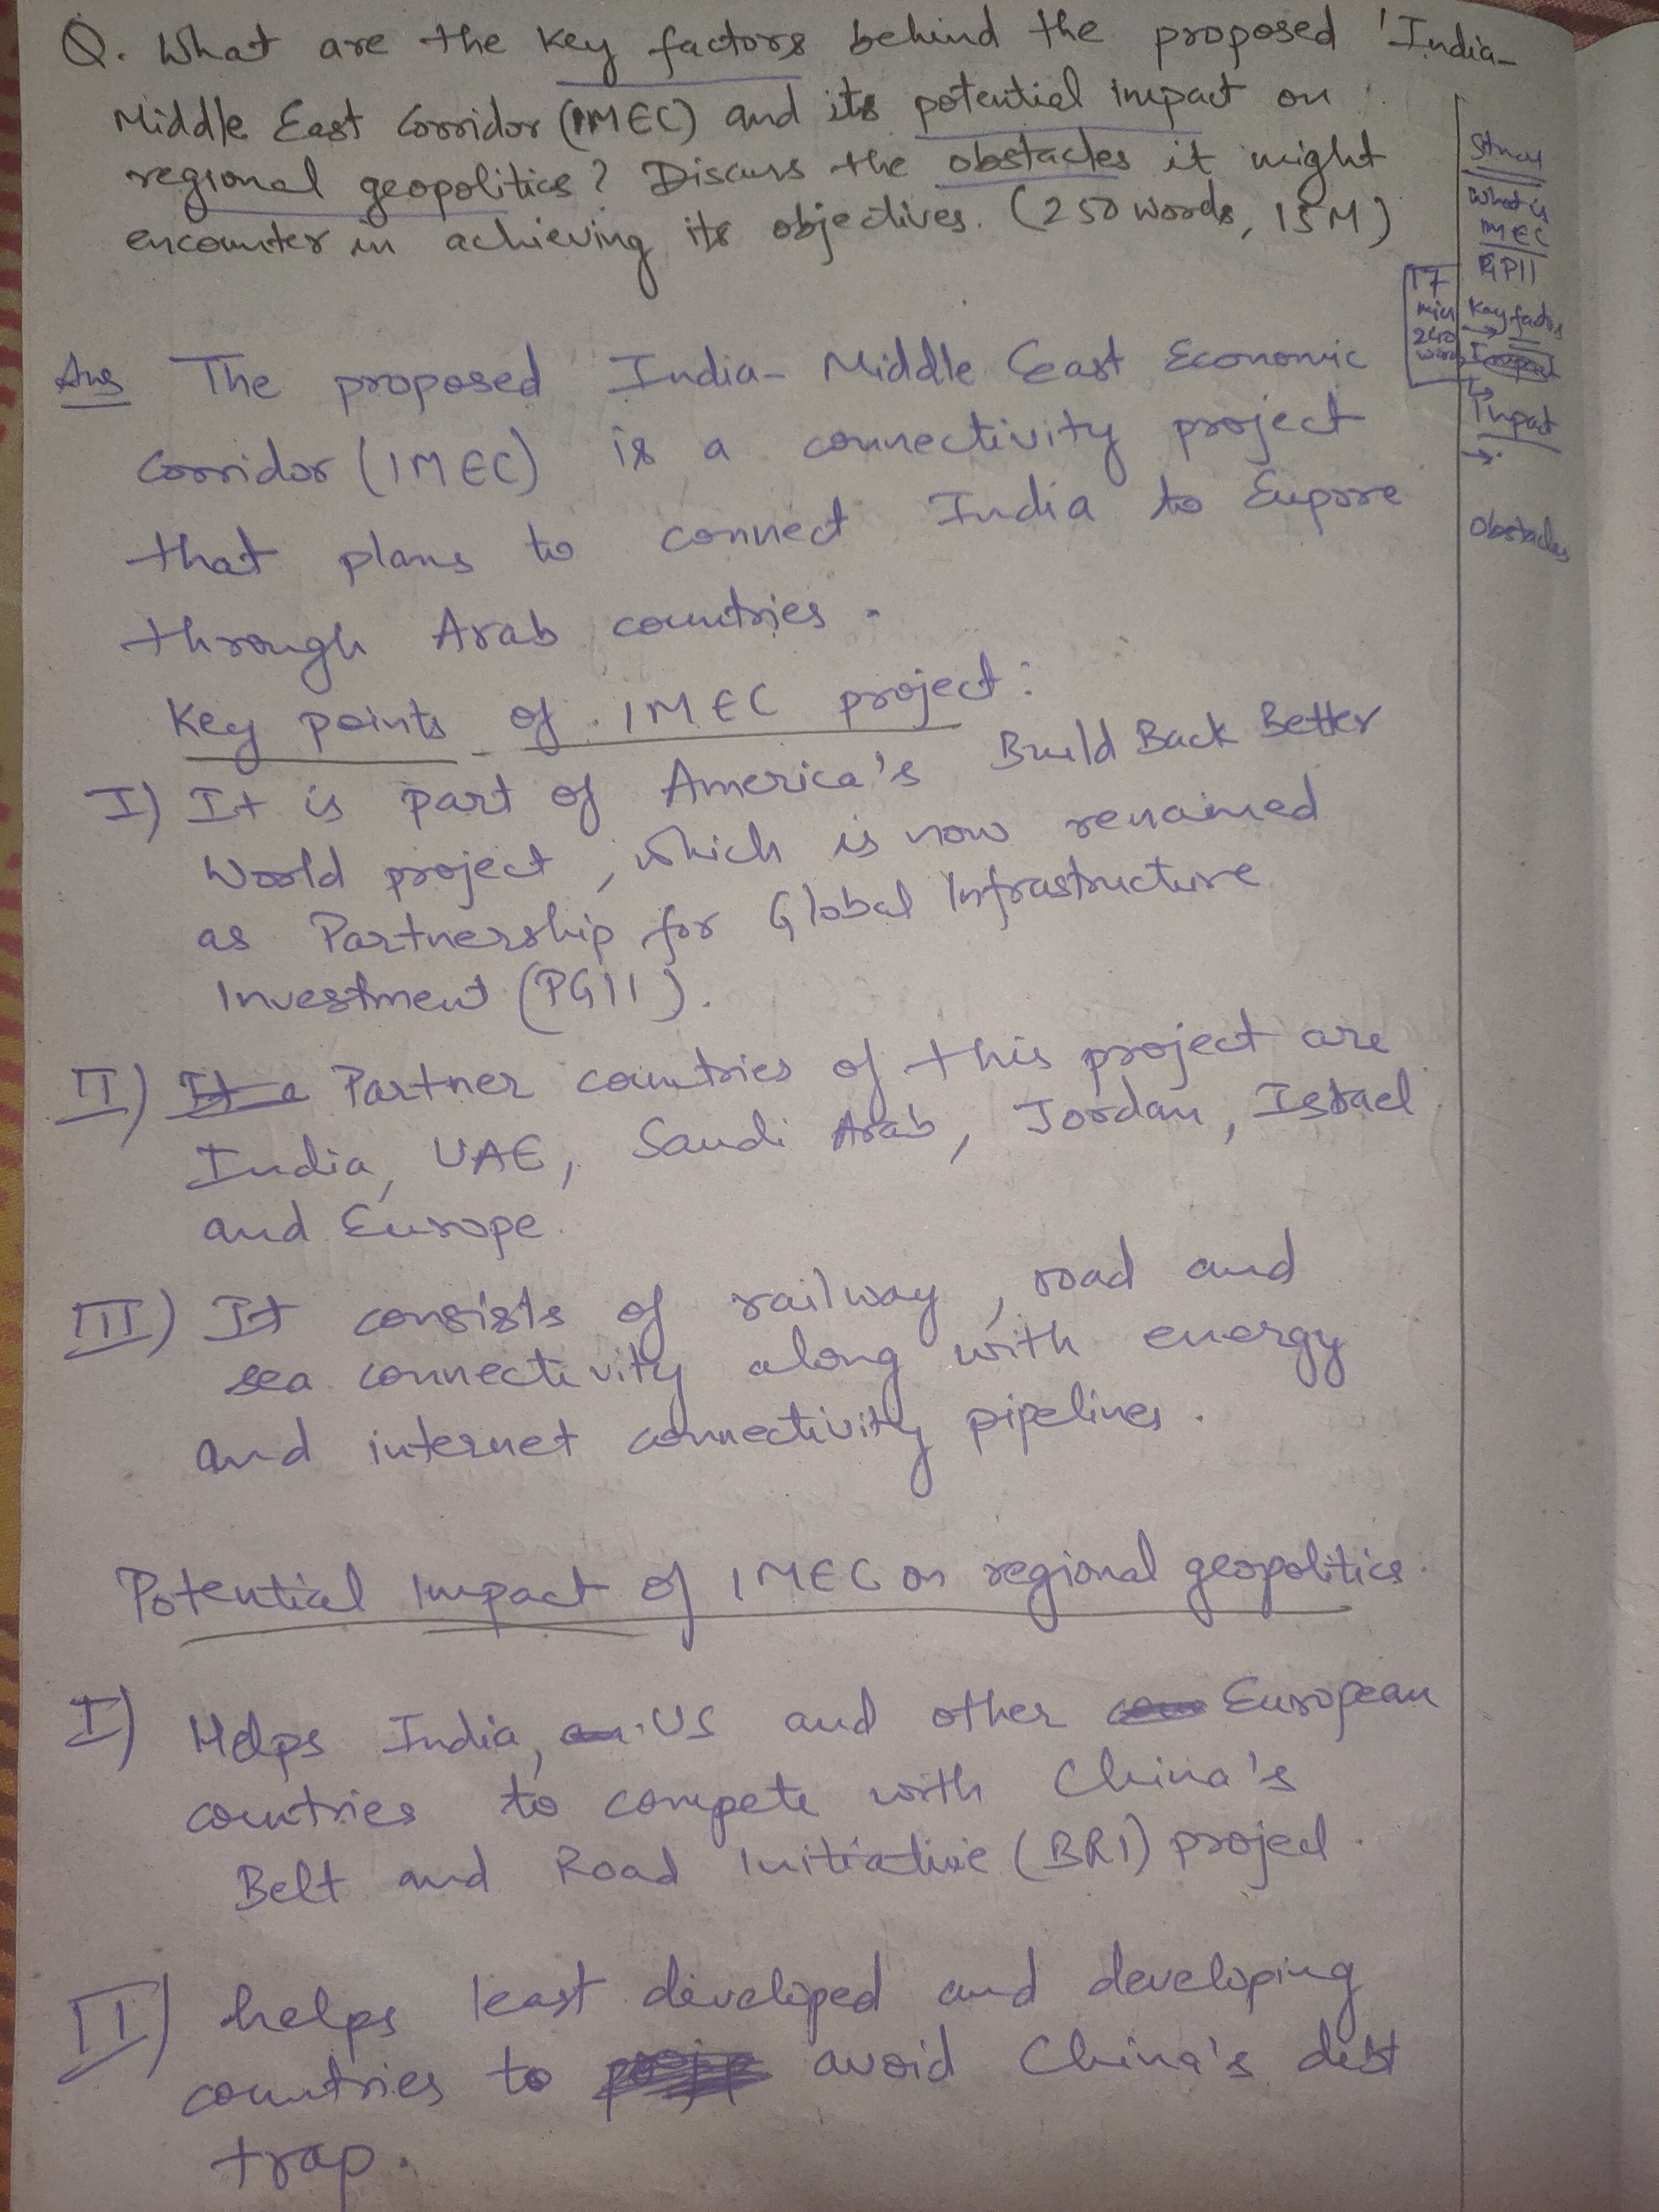 Q. What are the key factors behind the proposed 'India-
Middle East Corridor (IMEC) and its potential impact on
regional geopolitics? Discuss the obstacles it might
encounter in achieving its objectives. (250 words, 15M)
What is
IMEC
PGII
17
min
240
words
Key factors
→
Impact
→
Obstacles
Ans The proposed India-Middle East Economic
Corridor (IMEC) is a connectivity project
that plans to connect India to Eupore
through Arab countries.
Key points of IMEC project:
I) It is part of America's Build Back Better
World project, which is now renamed
as Partnership for Global Infrastructure
Investment (PGII).
II) Partner countries of this project are
India, UAE, Saudi Arab, Jordan, Israel
and Europe.
III) It consists of railway, road and
sea connectivity along with energy
and internet connectivity pipelines.
Potential Impact of IMEC on regional geopolitics.
I) Helps India, US and other European
countries to compete with China's
Belt and Road Initiative (BRI) project.
II) helps least developed and developing
countries to avoid China's debt
trap.